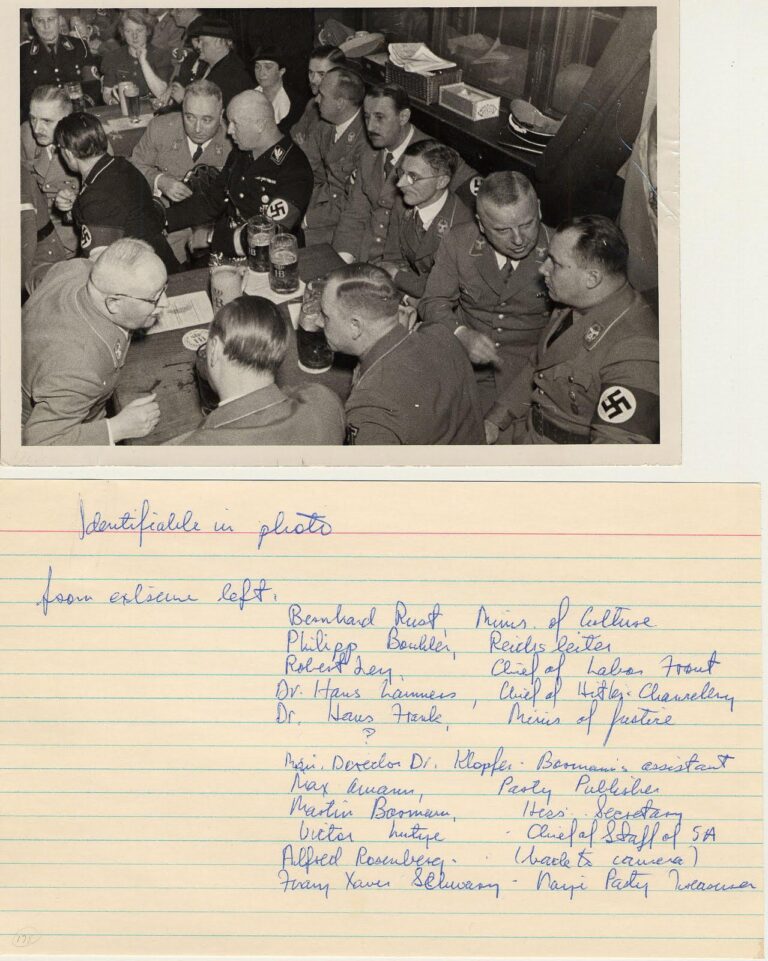 HB
Identifiable in photo
from extreme left.
Bernhard Rust, Minis. of Culture
Philipp Bouhler, Reichsleiter
Robert Ley, Chief of Labor Front
Dr. Hans Lammers, Chief of Hitler Chancellery
Dr. Hans Frank, Minis of justice
?
Min. Director Dr. Klopfer - Bormann's assistant
Max Amann, Party Publisher
Martin Bormann, Hess' Secretary
Victor Lutze - Chief of Staff of SA
Alfred Rosenberg - (back to camera)
Franz Xaver Schwarz - Nazi Party Treasurer